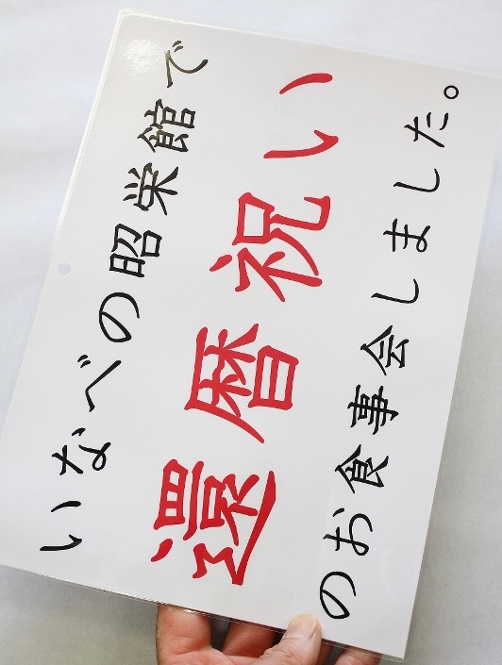 いなべの昭栄館で
還暦祝い
のお食事会しました。